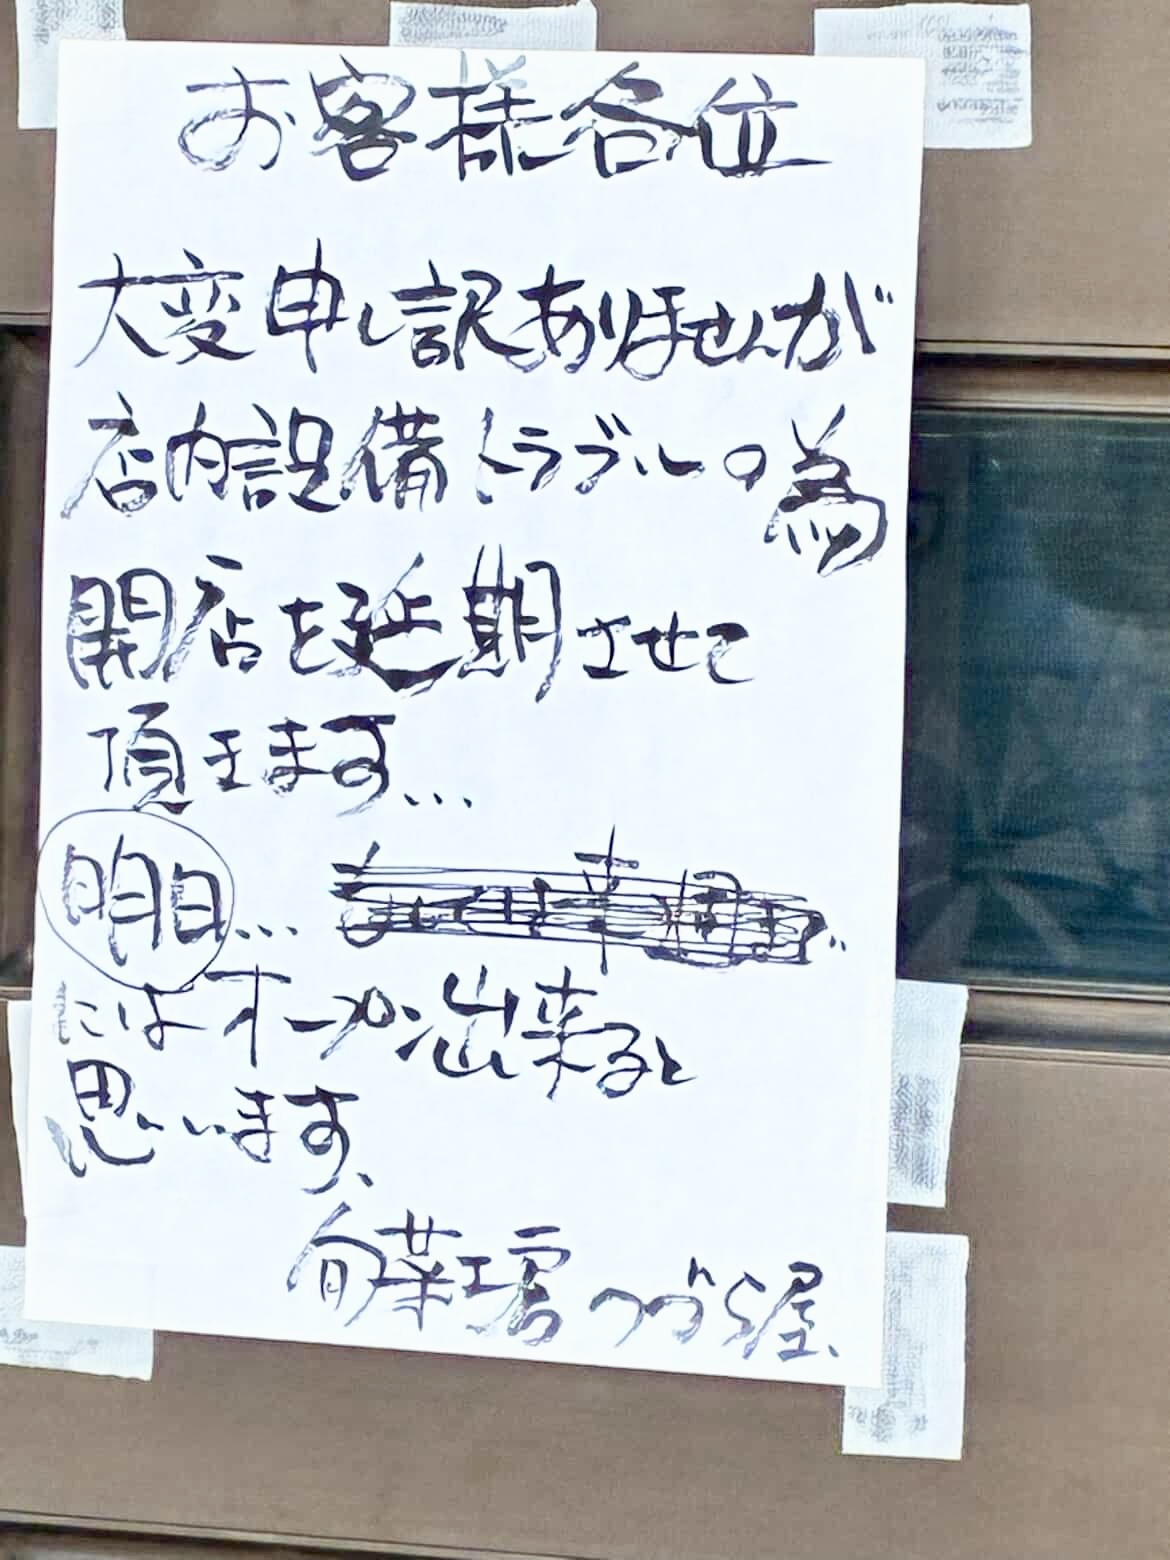 お客様各位
大変申し訳ありませんが
店内設備トラブルの為
開店を延期させて
頂きます...
明日...
にはオープン出来ると
思います、
つづら屋、